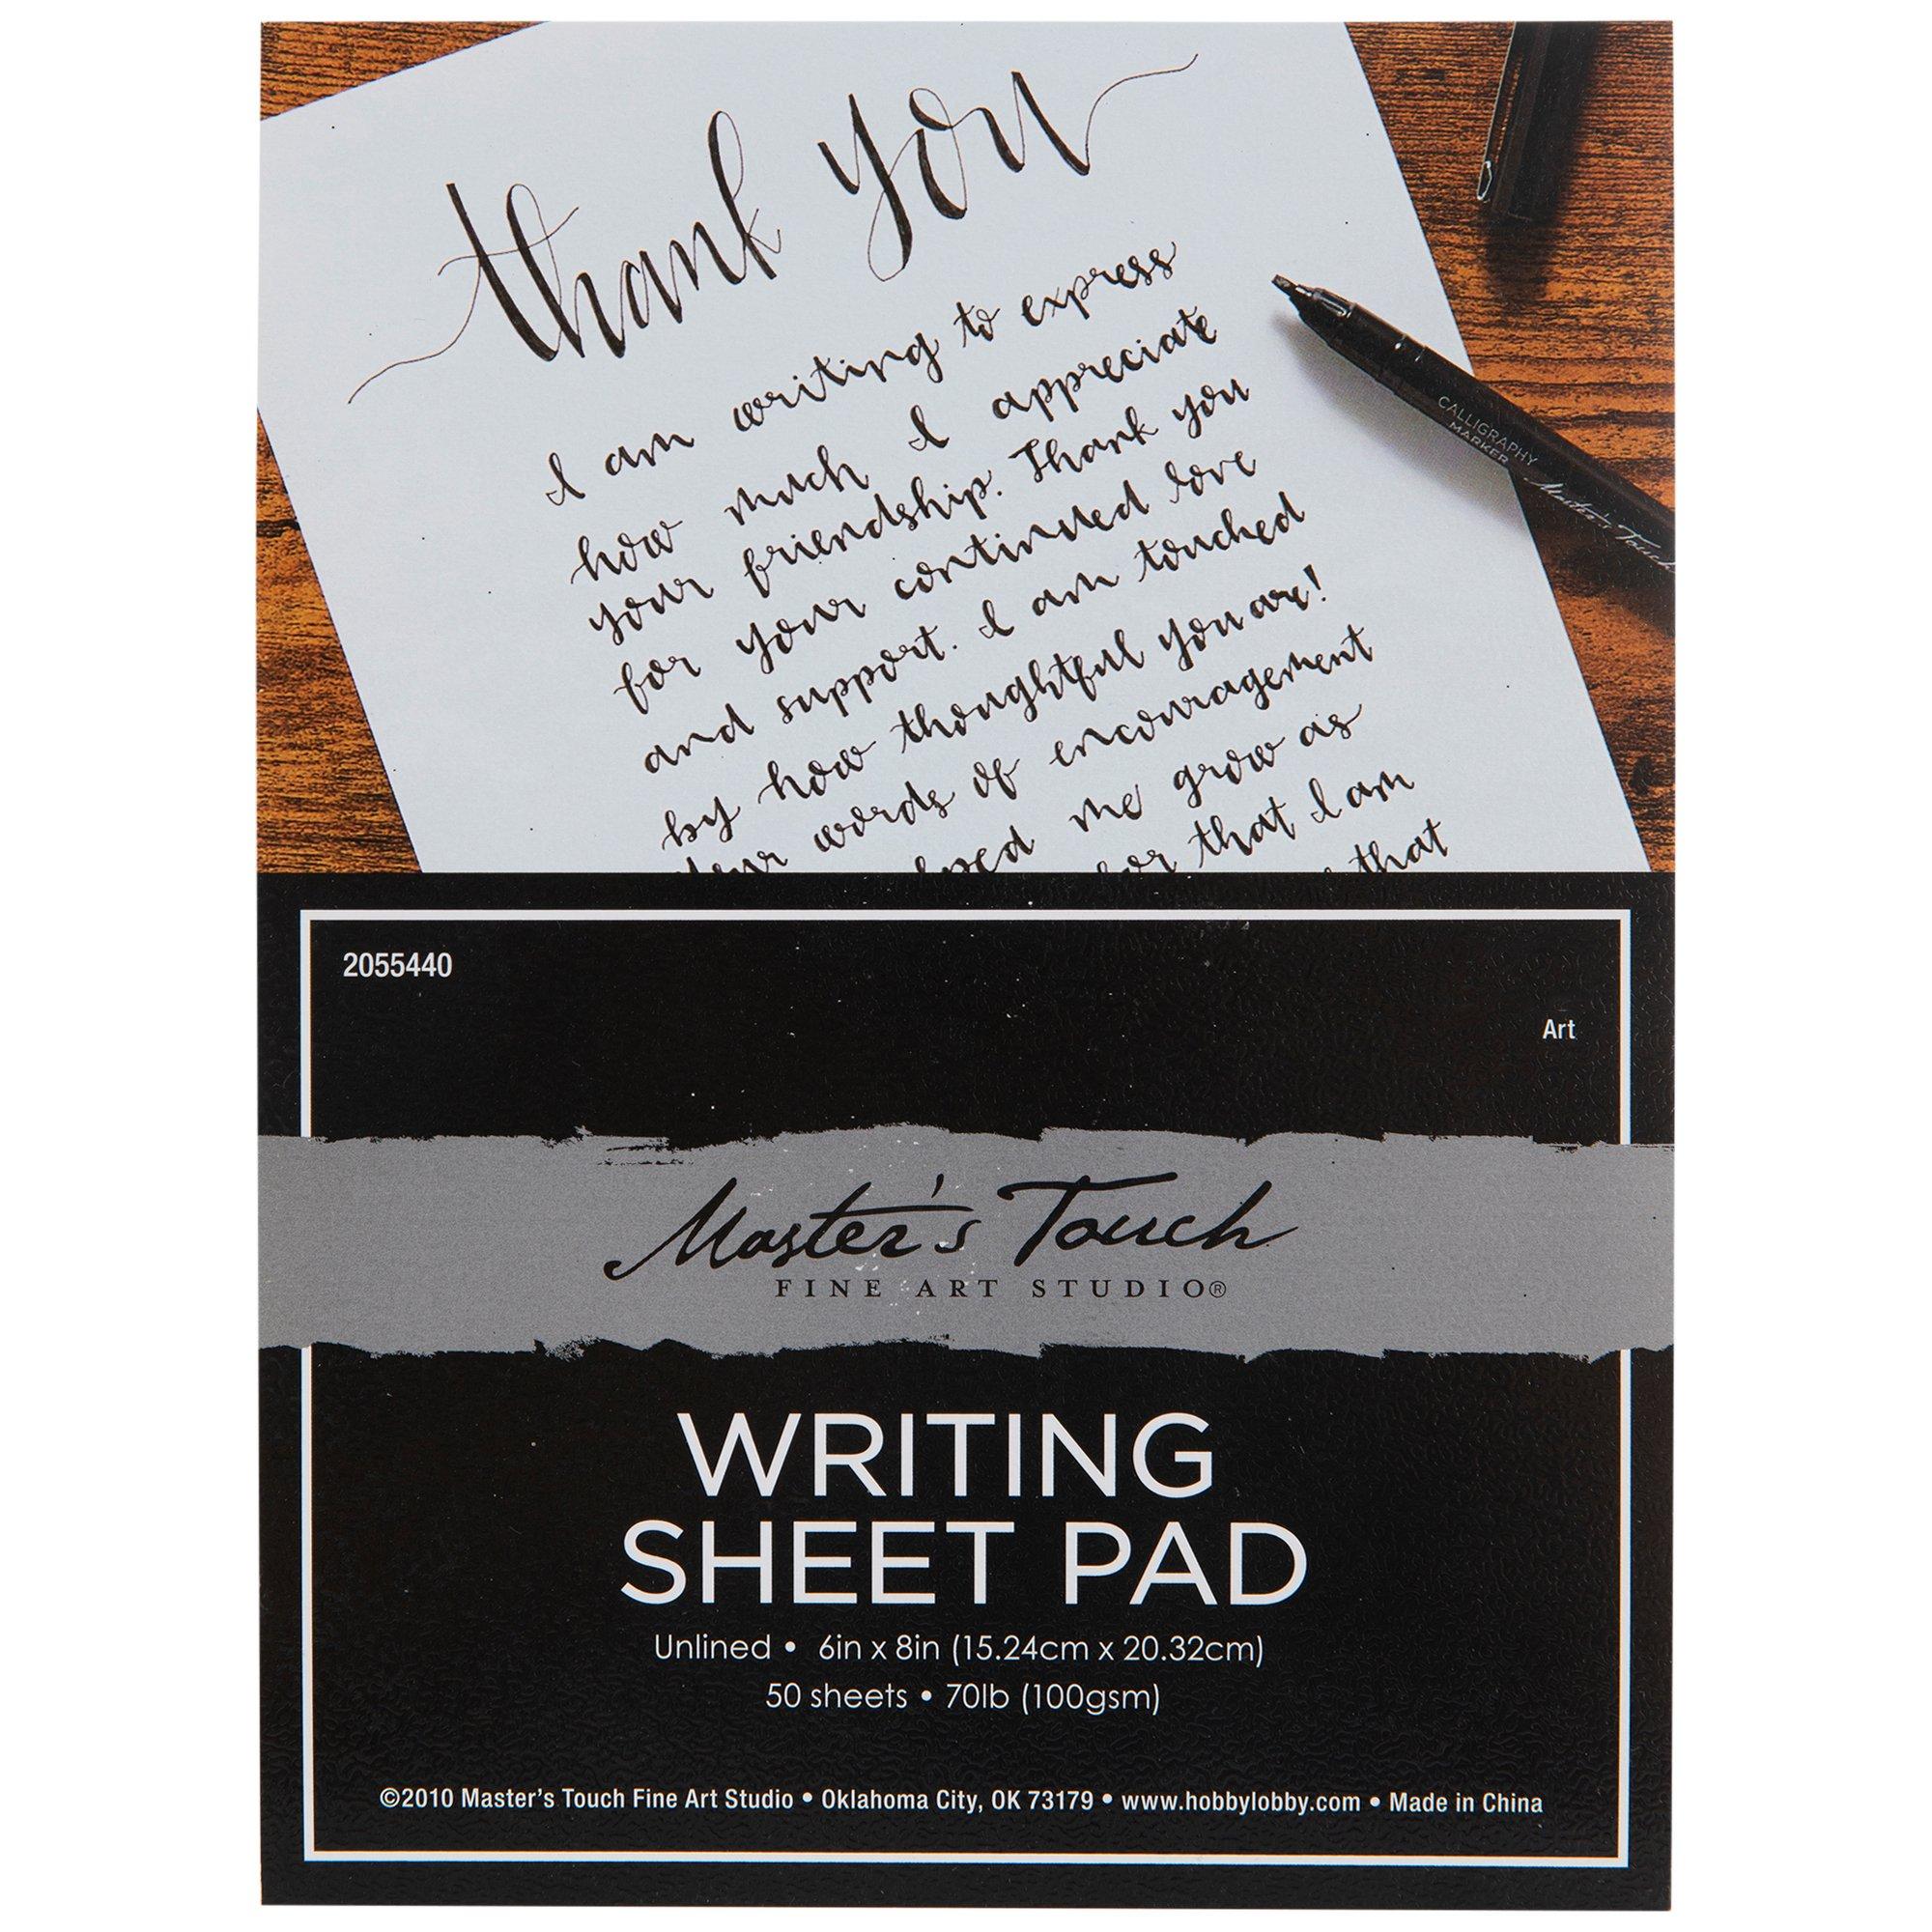 thank you
I am writing to express
how much I appreciate
your friendship. Thank you
for your continued love
and support. I am touched
by how thoughtful you are!
your words of encouragement
me grow as
for that I am
that
CALLIGRAPHY
MARKER
Master's Touch
2055440
Art
Master's Touch
FINE ART STUDIO®
WRITING
SHEET PAD
Unlined • 6in x 8in (15.24cm x 20.32cm)
50 sheets • 70lb (100gsm)
©2010 Master's Touch Fine Art Studio • Oklahoma City, OK 73179 • www.hobbylobby.com • Made in China